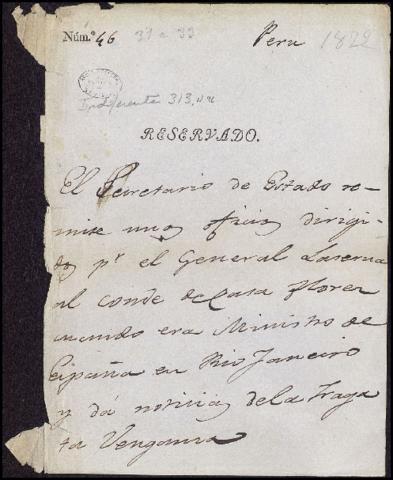 Núm.º 46 31 a 33 Peru 1822
Indiferente 313,
RESERVADO.
El Secretario de Estado re-
mite unos oficios dirigi-
dos pr el General Laserna
al conde de Casa Flores
cuando era Ministro de
España en Rio Janeiro
y dá noticias dela Fraga
ta Venganza